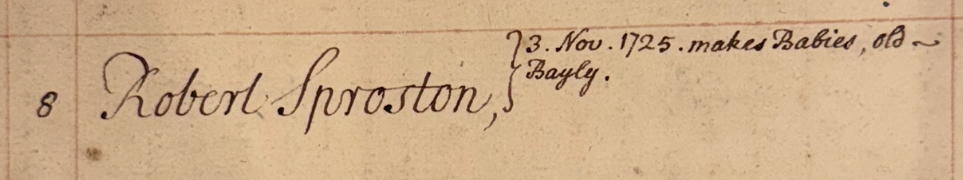 3. Nov. 1725. makes Babies, old ~
Bayly.
8 Robert Sproston,